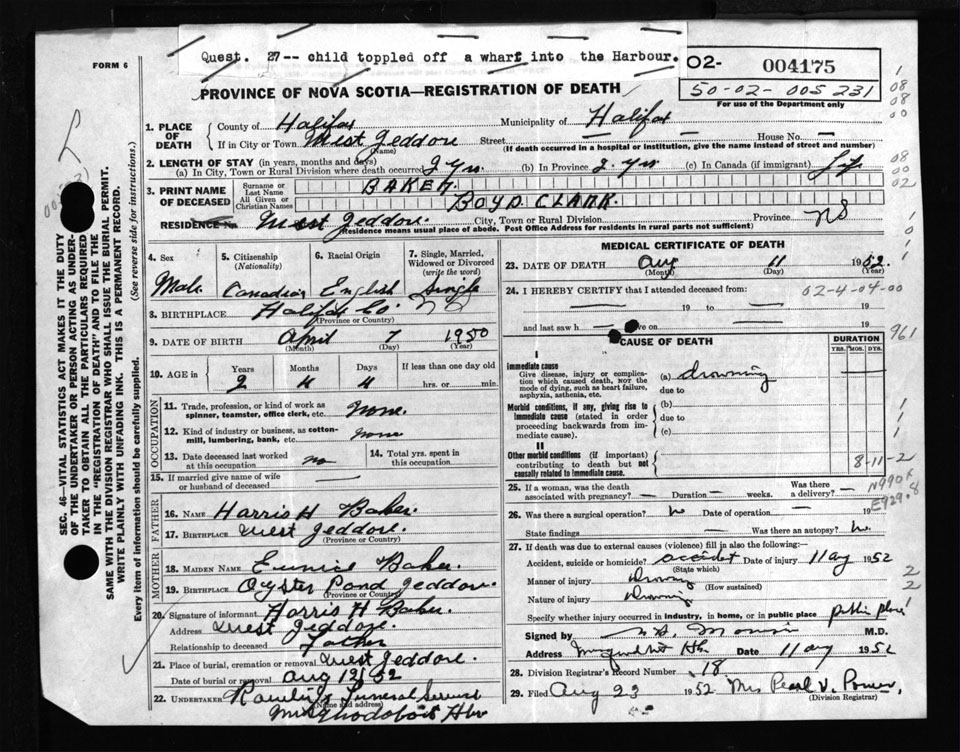 Quest. 27-- child toppled off a wharf into the Harbour.
FORM 6
02- 004175
50-02-005 231
For use of the Department only
PROVINCE OF NOVA SCOTIA—REGISTRATION OF DEATH
1. PLACE OF DEATH
County of Halifax Municipality of Halifax
If in City or Town West Jeddore Street — — House No. —
(Name) (If death occurred in a hospital or institution, give the name instead of street and number)
2. LENGTH OF STAY (in years, months and days)
(a) In City, Town or Rural Division where death occurred 2 Yrs. (b) In Province 2 Yrs (c) In Canada (if immigrant) Life
3. PRINT NAME OF DECEASED
Surname or Last Name BAKER.
All Given or Christian Names BOYD CLARK.
RESIDENCE No. West Jeddore. City, Town or Rural Division Province NS
(Residence means usual place of abode. Post Office Address for residents in rural parts not sufficient)
4. Sex Male
5. Citizenship (Nationality) Canadian
6. Racial Origin English
7. Single, Married, Widowed or Divorced (write the word) Single
8. BIRTHPLACE Halifax Co NS
(Province or Country)
9. DATE OF BIRTH April 7 1950
(Month) (Day) (Year)
10. AGE in Years 2 Months 4 Days 4 If less than one day old
hrs. or min.
OCCUPATION
11. Trade, profession, or kind of work as spinner, teamster, office clerk, etc. None.
12. Kind of industry or business, as cotton-mill, lumbering, bank, etc. None
13. Date deceased last worked at this occupation no
14. Total yrs. spent in this occupation
15. If married give name of wife or husband of deceased
FATHER
16. NAME Harris H Baker.
17. BIRTHPLACE West Jeddore.
(Province or Country)
MOTHER
18. MAIDEN NAME Eunice Baker
19. BIRTHPLACE Oyster Pond Jeddore.
(Province or Country)
20. Signature of informant Harris H Baker.
Address West Jeddore.
Relationship to deceased Father
21. Place of burial, cremation or removal West Jeddore.
Aug 13/52
22. UNDERTAKER Funeral Service
(Name and address)
Musquodoboit Hbr
MEDICAL CERTIFICATE OF DEATH
23. DATE OF DEATH Aug 11 1952.
(Month) (Day) (Year)
24. I HEREBY CERTIFY that I attended deceased from:
02-4-04-00
19 to 19
and last saw h — ive on — 19
961
CAUSE OF DEATH
DURATION
YRS. MOS. DYS.
I
Immediate cause
Give disease, injury or complication which caused death, NOT the mode of dying, such as heart failure, asphyxia, asthenia, etc.
(a) drowning
due to
Morbid conditions, if any, giving rise to immediate cause (stated in order proceeding backwards from immediate cause).
(b)
due to
(c)
II
Other morbid conditions (if important) contributing to death but not causally related to immediate cause.
8-11-2
25. If a woman, was the death associated with pregnancy? — Duration — weeks. Was there a delivery? —
N990
E929.8
26. Was there a surgical operation? No Date of operation — 19
State findings Was there an autopsy? No.
27. If death was due to external causes (violence) fill in also the following:—
Accident, suicide or homicide? accident Date of injury 11 Aug 1952
(State which)
Manner of injury Drowning (How sustained)
Nature of injury Drowning
Specify whether injury occurred in industry, in home, or in public place public place
Signed by M.D.
Address Musquodoboit Hbr Date 11 Aug 1952
28. Division Registrar's Record Number 18
29. Filed Aug 23 1952 Mrs Pearl V. Power,
(Division Registrar)
SEC. 46—VITAL STATISTICS ACT MAKES IT THE DUTY OF THE UNDERTAKER OR PERSON ACTING AS UNDERTAKER TO OBTAIN ALL THE PARTICULARS REQUIRED IN THE "REGISTRATION OF DEATH" AND TO FILE THE SAME WITH THE DIVISION REGISTRAR WHO SHALL ISSUE THE BURIAL PERMIT.
WRITE PLAINLY WITH UNFADING INK. THIS IS A PERMANENT RECORD.
Every item of information should be carefully supplied. (See reverse side for instructions.)